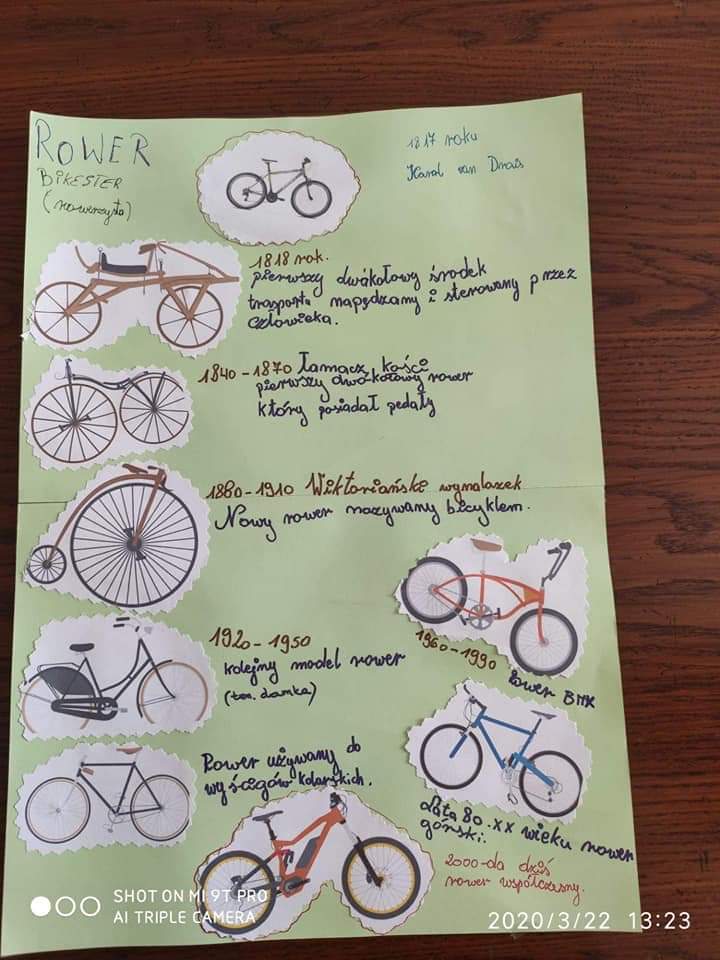 ROWER
BIKESTER
(rowerzysta)
1817 roku
Karol van Drais
1818 rok.
pierwszy dwukołowy środek
trasportu napędzany i sterowany przez
człowieka.
1840-1870 Łamacz kości
pierwszy dwukołowy rower
który posiadał pedały
1880-1910 Wiktoriański wynalazek
Nowy rower nazywany bicyklem.
1920-1950
kolejny model rower
(tzn. damka)
1960-1990
Rower BMX
Rower używany do
wyścigów kolarskich.
Lata 80.XX wieku rower
górski.
2000-da dziś
rower współczesny.
SHOT ON MI 9T PRO
AI TRIPLE CAMERA
2020/3/22 13:23